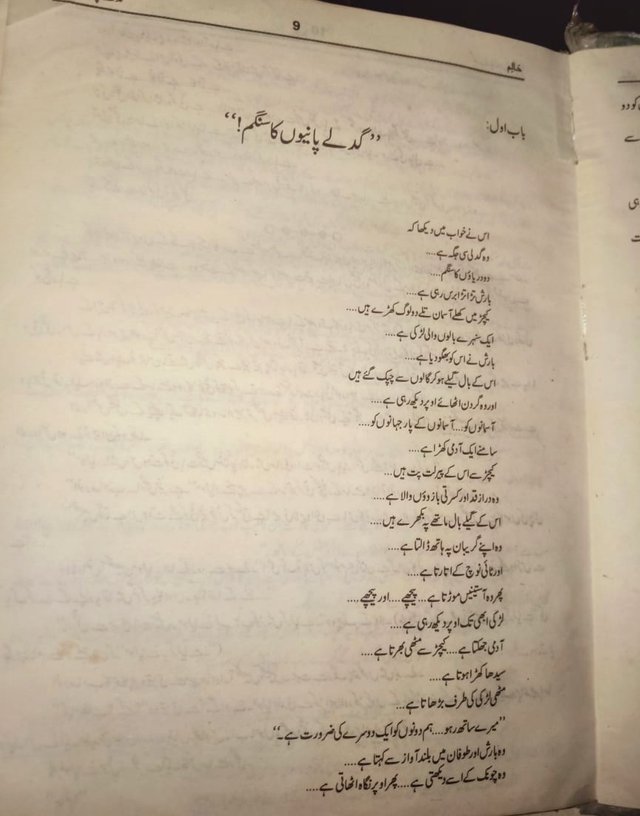 9
حالم
باب اول:
’’گدلے پانیوں کا سنگم!‘‘
اس نے خواب میں دیکھا کہ
وہ گدلی سی جگہ ہے....
دو دریاؤں کا سنگم....
بارش تڑا تڑ برس رہی ہے....
کیچڑ میں کھلے آسمان تلے دو لوگ کھڑے ہیں....
ایک سنہرے بالوں والی لڑکی ہے....
بارش نے اس کو بھگو دیا ہے....
اس کے بال گیلے ہو کر گالوں سے چپک گئے ہیں
اور وہ گردن اٹھائے اوپر دیکھ رہی ہے....
آسمانوں کو....آسمانوں کے پار جہانوں کو....
سامنے ایک آدمی کھڑا ہے....
کیچڑ سے اس کے پیر لت پت ہیں...
وہ دراز قد اور کسرتی بازوؤں والا ہے....
اس کے گیلے بال ماتھے پہ بکھرے ہیں....
وہ اپنے گریبان پہ ہاتھ ڈالتا ہے....
اور ٹائی نوچ کے اتارتا ہے....
پھر وہ آستینیں موڑتا ہے....پیچھے....اور پیچھے....
لڑکی ابھی تک اوپر دیکھ رہی ہے....
آدمی جھکتا ہے....کیچڑ سے مٹھی بھرتا ہے....
سیدھا کھڑا ہوتا ہے....
مٹھی لڑکی کی طرف بڑھاتا ہے...
’’میرے ساتھ رہو....ہم دونوں کو ایک دوسرے کی ضرورت ہے۔‘‘
وہ بارش اور طوفان میں بلند آواز سے کہتا ہے....
وہ چونک کے اسے دیکھتی ہے....پھر اوپر نگاہ اٹھاتی ہے....